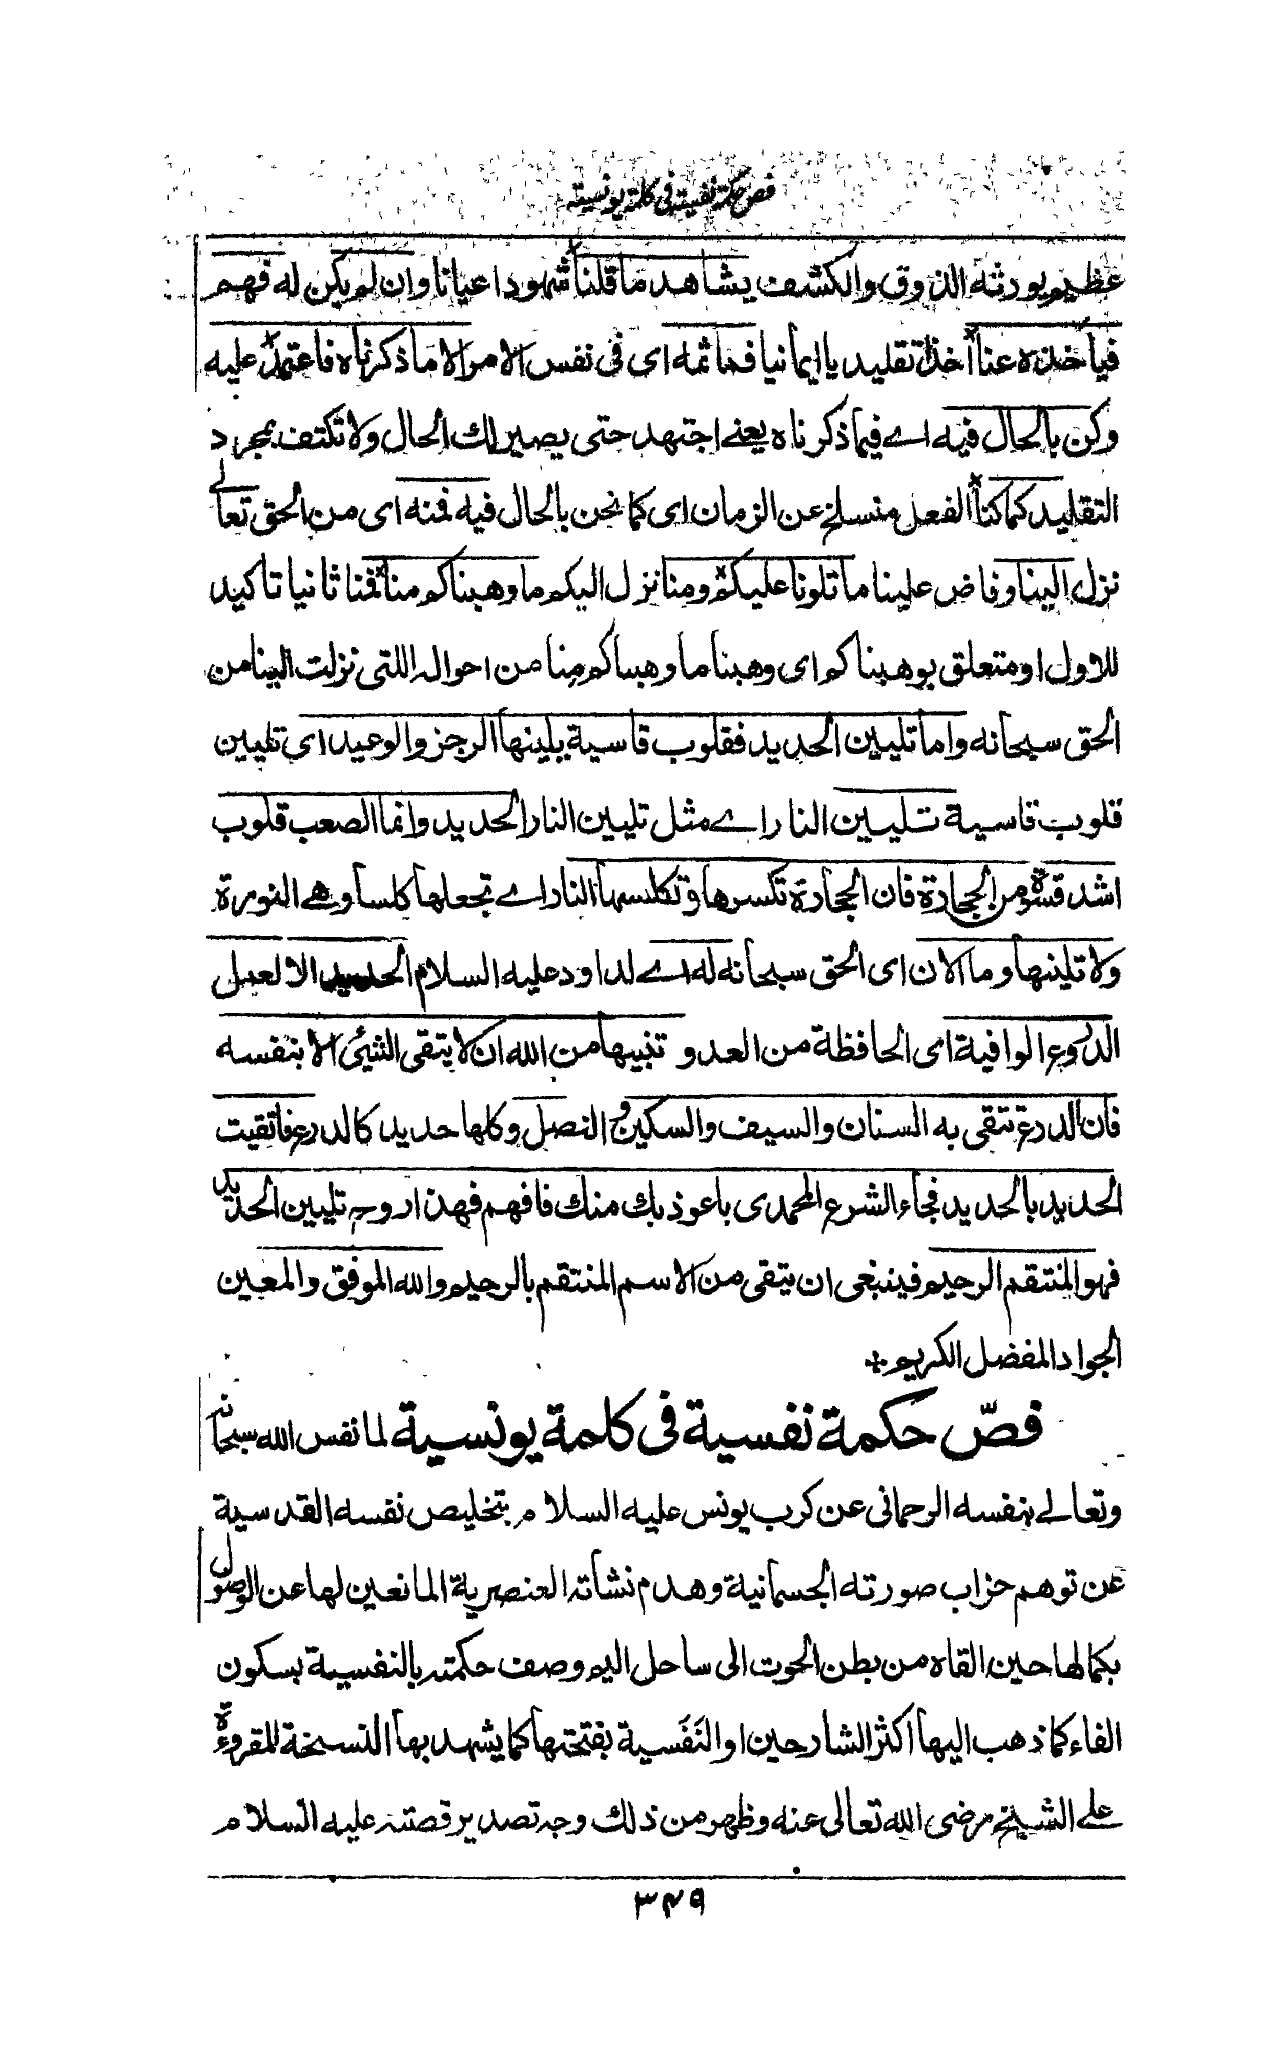 فص حكمة نفسية فى كلمة يونسية
عظيم يورثه الذوق والكشف يشاهد ما قلنا شهودا عيانا وان لم يكن له فهم
فيأخذه عنا أخذا تقليديا ايمانيا فما ثمه اى فى نفس الامر الا ما ذكرناه فاعتمد عليه
وكن بالحال فيه اے فيما ذكرناه يعنے اجتهد حتى يصير لك الحال ولا تكتف بمجرد
التقليد كما كنا الفعل منسلخ عن الزمان اى كما نحن بالحال فيه فمنه اى من الحق تعالى
نزل الينا وفاض علينا ما تلونا عليكم ومنا نزل اليكم ما وهبناكم منا فمنا ثانيا تاكيد
للاول او متعلق بوهبناكم اى وهبنا ما وهبناكم منا من احواله اللتى نزلت الينا من
الحق سبحانه واما تليين الحديد فقلوب قاسية يلينها الزجر والوعيد اى تليين
قلوب قاسية تليين النار اے مثل تليين النار الحديد وانما الصعب قلوب
اشد قسوة من الحجارة فان الحجارة تكسرها وتكلسها النار اے تجعلها كلسا وهے النورة
ولا تلينها وما الان اى الحق سبحانه له اے لداود عليه السلام الحديد الا لعمل
الدروع الوافية اى الحافظة من العدو تنبيها من الله ان لا يتقى الشيئ الا بنفسه
فان الدرع تتقى به السنان والسيف والسكين و النصل وكلها حديد كالدرع فاتقيت
الحديد بالحديد فجاء الشرع المحمدى باعوذ بك منك فافهم فهذا روح تليين الحديد
فهو المنتقم الرحيم فينبغى ان يتقى من الاسم المنتقم بالرحيم والله الموفق والمعين
الجواد المفضل الكريم ✢
فصّ حكمة نفسية فى كلمة يونسية لما نفس الله سبحانه
وتعالے بنفسه الرحمانى عن كرب يونس عليه السلام بتخليص نفسه القدسية
عن توهم خراب صورته الجسمانية وهدم نشأته العنصرية المانعين لها عن الوصول
بكمالها حين القاه من بطن الحوت الى ساحل اليم وصف حكمته بالنفسية بسكون
الفاء كما ذهب اليها أكثر الشارحين او النَفَسية بفتحتها كما يشهد بها النسخة المقروءة
علے الشيخ رضى الله تعالى عنه وظهر من ذلك وجه تصدير قصته عليه السلام
٣٤٩